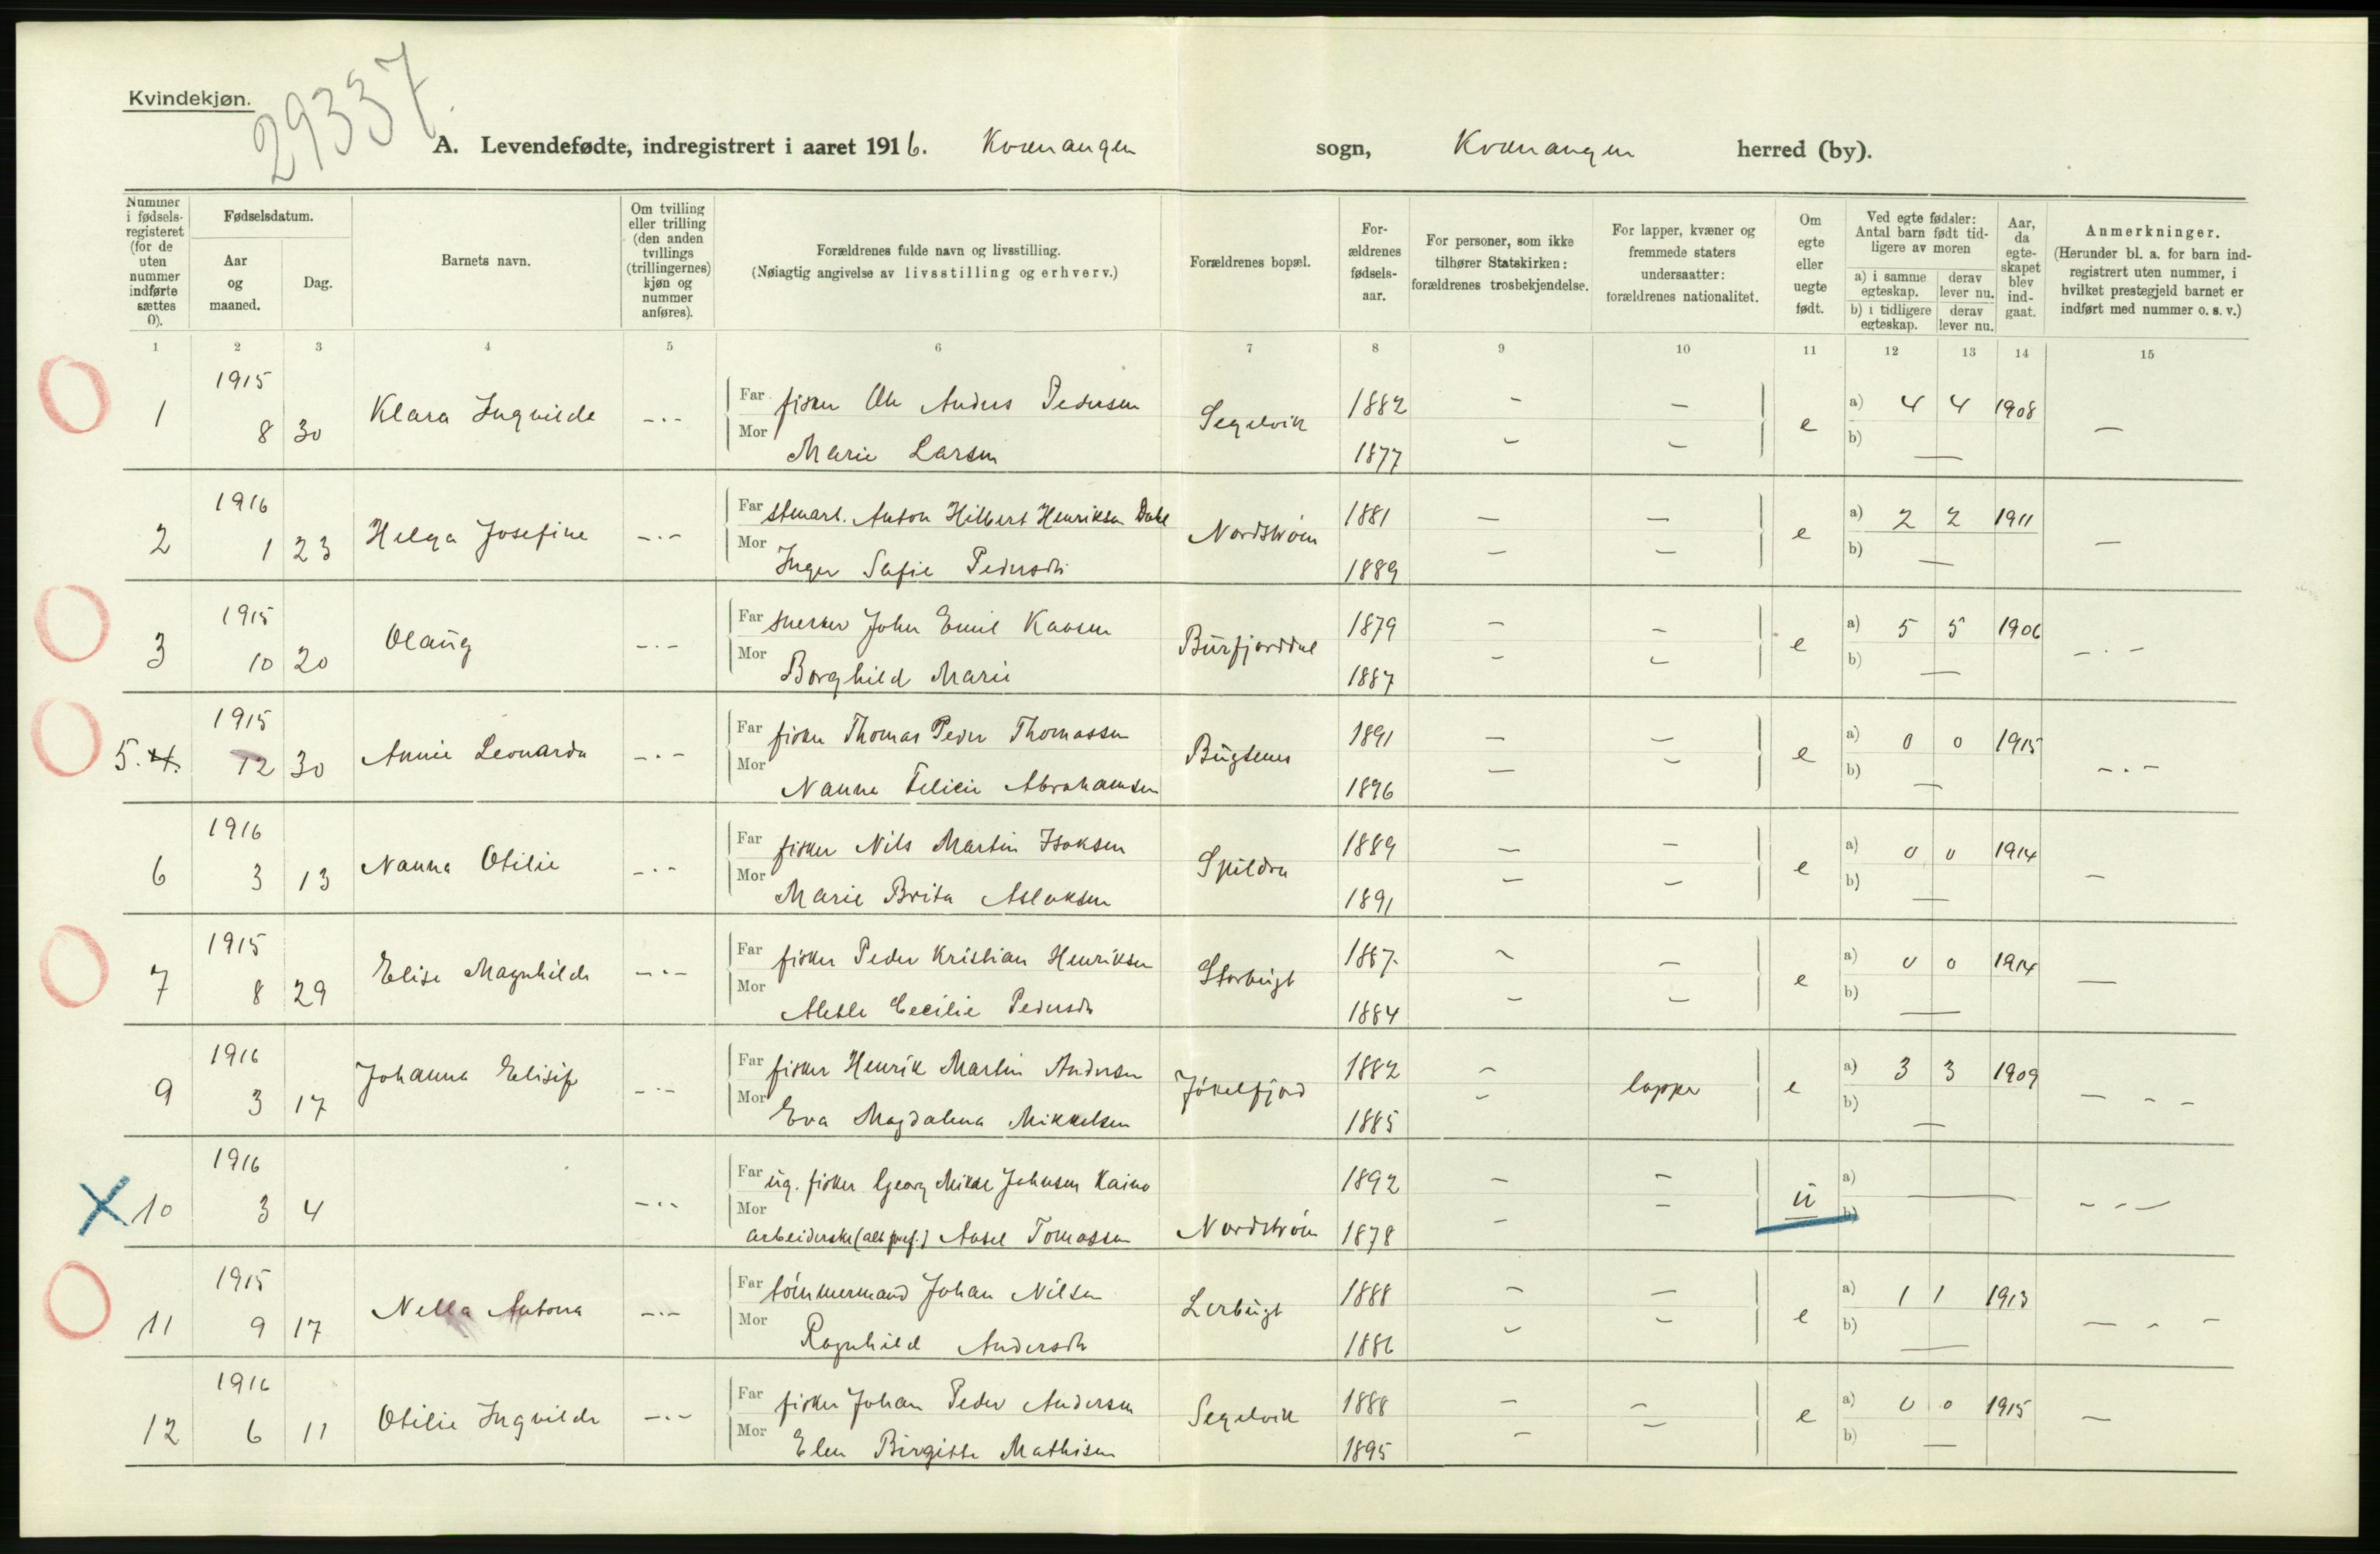 Kvindekjøn.
29337.
A. Levendefødte, indregistrert i aaret 1916. Kvænangen sogn, Kvænangen herred (by).
Nummer i fødsels-registeret (for de uten nummer indførte sættes 0).
Fødselsdatum.
Aar og maaned.
Dag.
Barnets navn.
Om tvilling eller trilling (den anden tvillings (trillingernes) kjøn og nummer anføres).
Forældrenes fulde navn og livsstilling.
(Nøiagtig angivelse av livsstilling og erhverv.)
Forældrenes bopæl.
For-ældrenes fødsels-aar.
For personer, som ikke tilhører Statskirken: forældrenes trosbekjendelse.
For lapper, kvæner og fremmede staters undersaatter: forældrenes nationalitet.
Om egte eller uegte født.
Ved egte fødsler: Antal barn født tid-ligere av moren
a) i samme egteskap.
derav lever nu.
b) i tidligere egteskap.
derav lever nu.
Aar, da egte-skapet blev ind-gaat.
Anmerkninger.
(Herunder bl. a. for barn ind-registrert uten nummer, i hvilket prestegjeld barnet er indført med nummer o. s. v.)
1 2 3 4 5 6 7 8 9 10 11 12 13 14 15
1 1915 8 30 Klara Ingvilde -.- Far fisker Ole Anders Pedersen Segelvik 1882 - - e a) 4 4 1908 —
Mor Marie Larsen 1877 - - b) —
2 1916 1 23 Helga Josefine -.- Far Anton Hilbert Henriksen Dahl Nordstrøm 1881 - - e a) 2 2 1911 —
Mor Inger Sofie Pedersdtr 1889 - - b) —
3 1915 10 20 Olaug -.- Far snekker John Emil Kaasen Burfjorddal 1879 - - e a) 5 5 1906 -.-
Mor Borghild Marie 1887 - - b) —
5. 4. 1915 12 30 Annie Leonarda -.- Far fisker Thomas Peder Thomassen Bugtenes 1891 - - e a) 0 0 1915 -.-
Mor Nanna Felicie Abrahamsen 1896 - - b) —
6 1916 3 13 Nanna Otilie -.- Far fisker Nils Martin Isaksen Spildra 1889 - - e a) 0 0 1914 -
Mor Marie Brita Aslaksen 1891 - - b) —
7 1915 8 29 Elise Magnhilde -.- Far fisker Peder Kristian Henriksen Storbugt 1887. - - e a) 0 0 1914 —
Mor Alette Cecilie Pedersdtr 1884 - - b) —
9 1916 3 17 Johanna Elisif -.- Far fisker Henrik Martin Andersen Jøkelfjord 1882 - lapper e a) 3 3 1909 - - -
Mor Eva Magdalena Mikkelsen 1885 - b) —
10 1916 3 4 -.- Far ug. fisker Georg Mikal Johnsen Kaino 1892 - - u a) — - - -
Mor arbeiderske Aasel Tomassen Nordstrøm 1878 - - b)
11 1915 9 17 Nella Antona -.- Far tømmermand Johan Nilsen Lerbugt 1888 - - e a) 1 1 1913 - - -
Mor Ragnhild Andersdtr 1886 - - b) —
12 1916 6 11 Otilie Ingvilde -.- Far fisker Johan Peder Andersen Segelvik 1888 - - e a) 0 0 1915 —
Mor Elen Birgitte Mathisen 1895 - - b) —